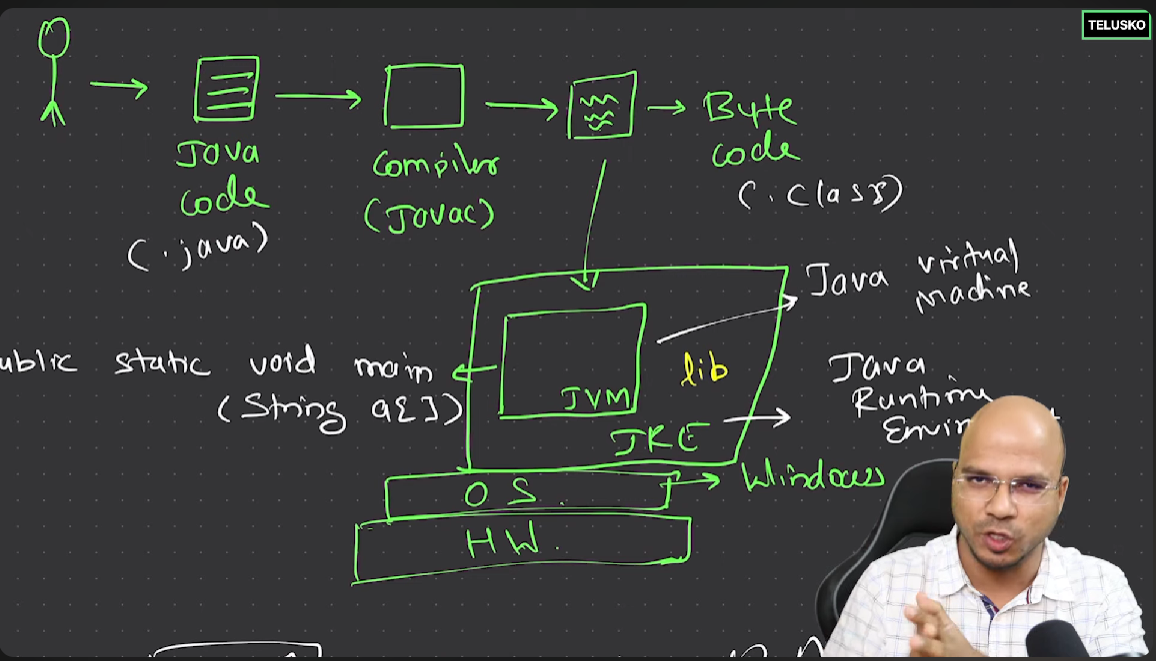 TELUSKO
Java
code
(.java)
Compiler
(Javac)
Byte
code
(.class)
Java virtual
machine
public static void main
(String a[])
JVM
lib
JRE
Java
Runtime
OS.
Windows
HW.